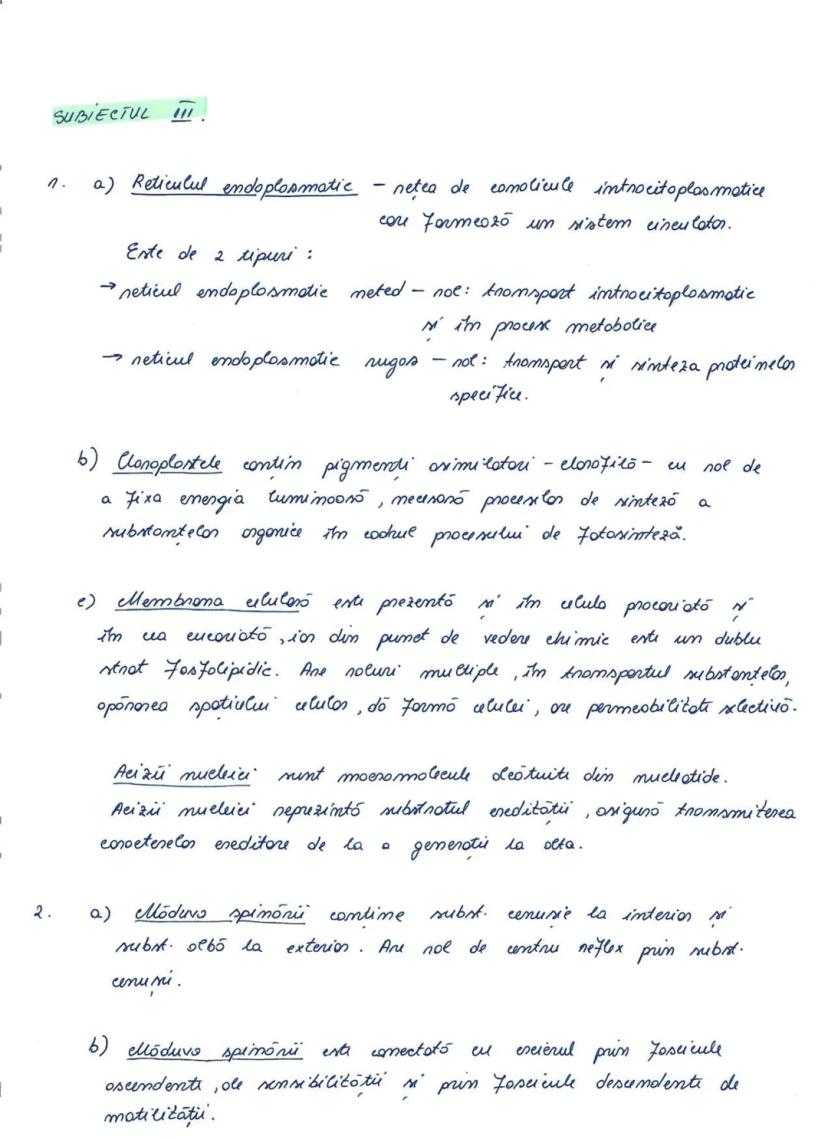 SUBIECTUL III.
1. a) Reticulul endoplasmatic – rețea de canalicule intracitoplasmatice
care formează un sistem circulator.
Este de 2 tipuri:
→ reticul endoplasmatic neted – rol: transport intracitoplasmatic
și în procese metabolice
→ reticul endoplasmatic rugos – rol: transport și sinteza proteinelor
specifice.
b) Cloroplastele conțin pigmenți asimilatori – clorofilă – cu rol de
a fixa energia luminoasă, necesară proceselor de sinteză a
substanțelor organice în cadrul procesului de fotosinteză.
c) Membrana celulară este prezentă și în celula procariotă și
în cea eucariotă, iar din punct de vedere chimic este un dublu
strat fosfolipidic. Are roluri multiple, în transportul substanțelor,
apărarea spațiului celular, dă formă celulei, are permeabilitate selectivă.
Acizii nucleici sunt macromolecule alcătuite din nucleotide.
Acizii nucleici reprezintă substratul eredității, asigură transmiterea
caracterelor ereditare de la o generație la alta.
2. a) Măduva spinării conține subst. cenușie la interior și
subst. albă la exterior. Are rol de centru reflex prin subst.
cenușii.
b) Măduva spinării este conectată cu creierul prin fascicule
ascendente, ale sensibilității și prin fascicule descendente de
motilității.